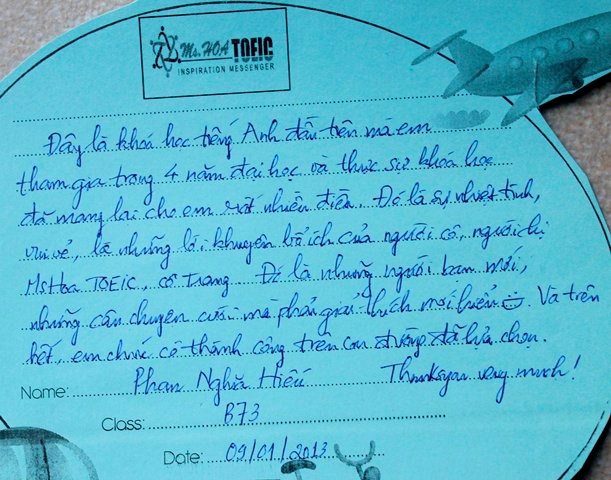 Ms. HOA TOEIC
INSPIRATION MESSENGER
Đây là khoá học tiếng Anh đầu tiên mà em
tham gia trong 4 năm đại học và thực sự khoá học
đã mang lại cho em rất nhiều điều. Đó là sự nhiệt tình,
vui vẻ, là những lời khuyên bổ ích của người cô, người chị
MsHoa TOEIC, cô Trang... Đó là những người bạn mới,
những câu chuyện cười mà phải giải thích mới hiểu. Và trên
hết, em chúc cô thành công trên con đường đã lựa chọn.
Name: Phan Nghĩa Hiếu Thankyou very much!
Class: B73
Date: 09/01/2013